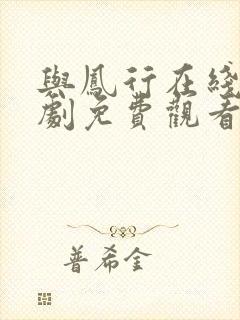 與鳳行在綫
劇免費觀看
普希金